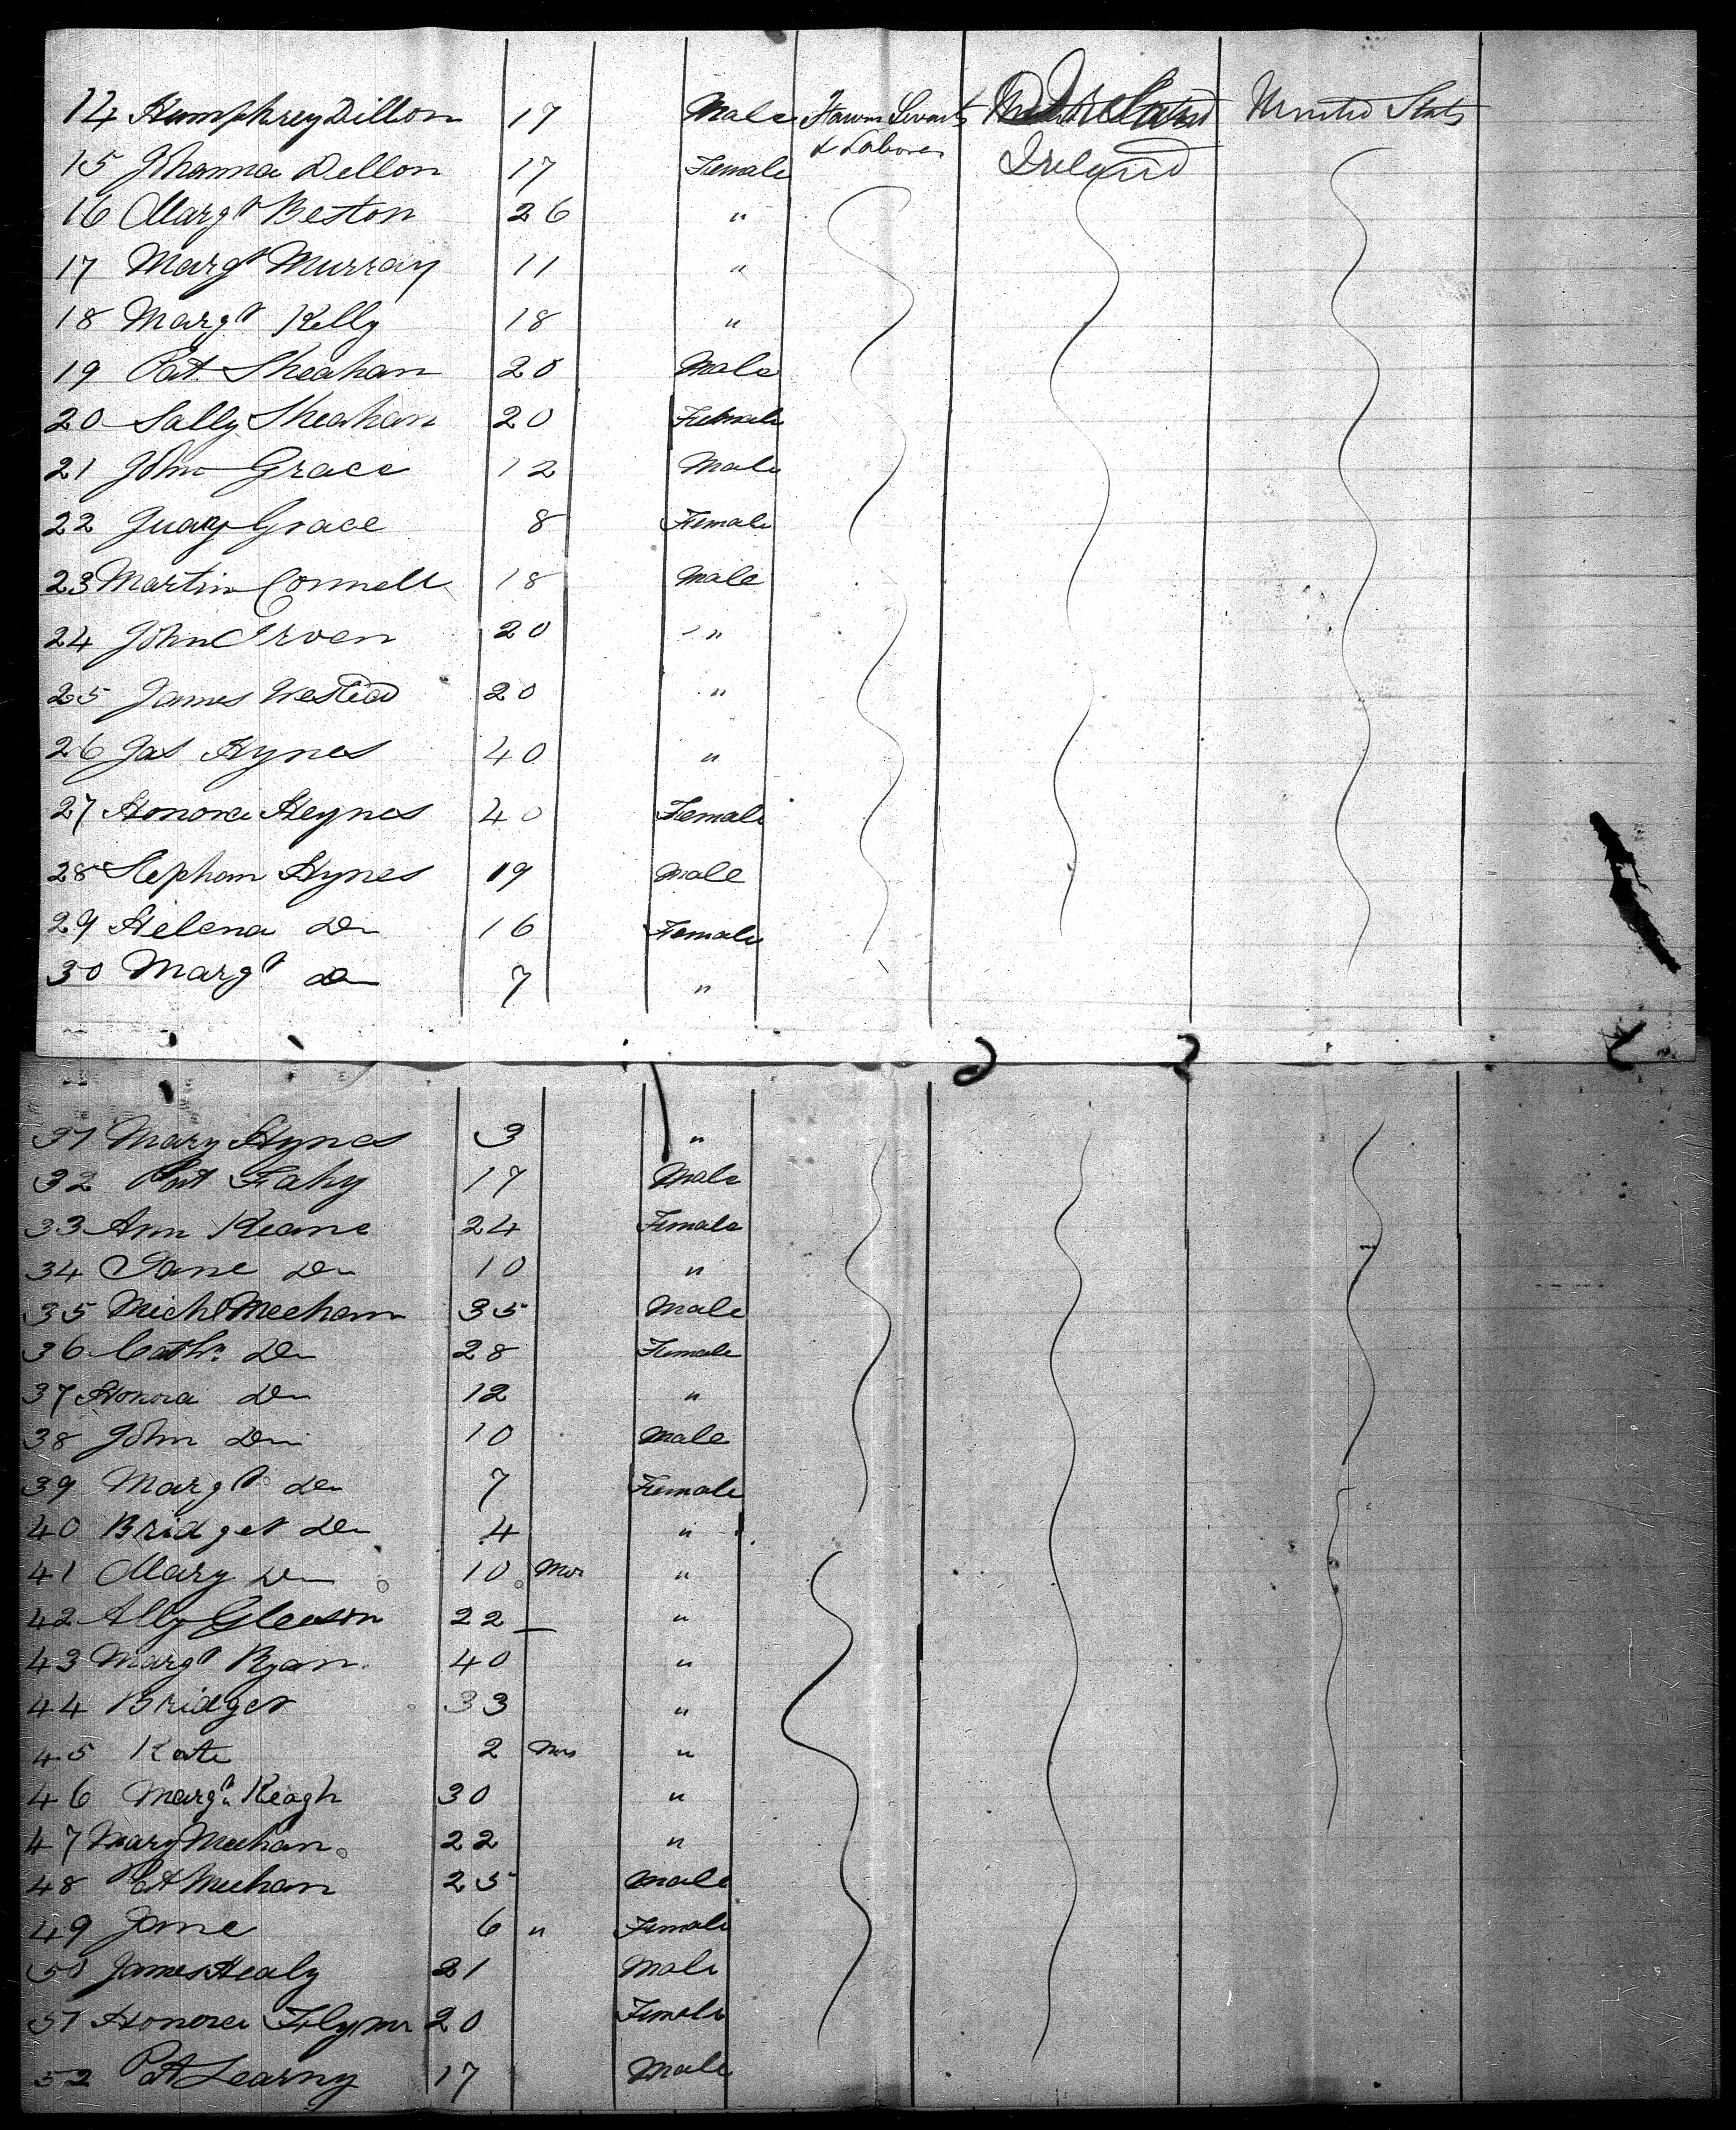 14 Humphrey Dillon 17 Male Farm Servants Ireland United States
& Labores
15 Johanna Dellon 17 Female Ireland
16 Margt Beston 26 "
17 Margt Murray 11 "
18 Margt Kelly 18 "
19 Pat. Sheahan 20 Male
20 Sally Sheahan 20 Female
21 John Grace 12 Male
22 Grace 8 Female
23 Martin Connell 18 Male
24 John 20 "
25 James 20 "
26 Jas Hynes 40 "
27 Honora Heynes 40 Female
28 Stephen Hynes 19 Male
29 Helena Do 16 Female
30 Margt do 7 "
31 Mary Hynes 3 "
32 Pat Fahy 17 Male
33 Ann Keane 24 Female
34 Jane Do 10 "
35 Michl Meehan 35 Male
36 Cathn Do 28 Female
37 Honora Do 12 "
38 John Do 10 Male
39 Margt do 7 Female
40 Bridget Do 4 "
41 Mary Do 10 Mos "
42 Ally Gleeson 22 — "
43 Margt Ryan 40 "
44 Bridget 33 "
45 Kate 2 Mos "
46 Margt Keagh 30 "
47 Mary Meehan 22 "
48 Pat Meehan 25 Male
49 Jane 6 " Female
50 James Healy 21 Male
51 Honora Flynn 20 Female
52 Pat Learny 17 Male